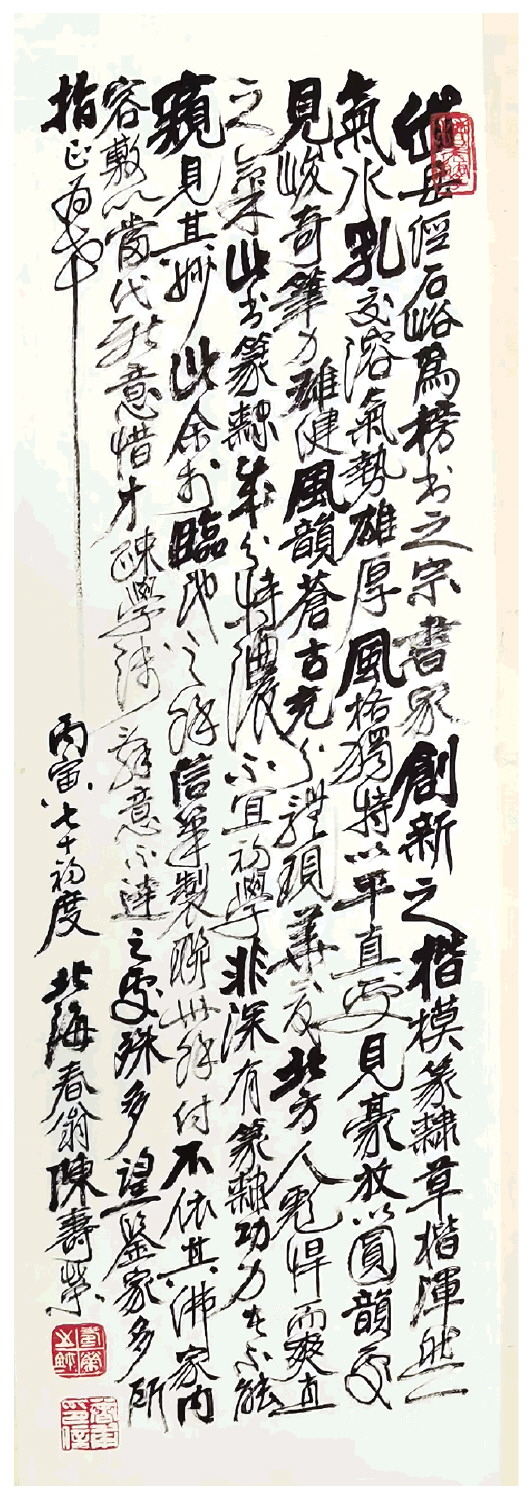 岱岳經石峪為榜书之宗書家創新之楷模篆隸草楷渾然一
氣水乳交溶氣勢雄厚風格獨特以平直處見豪放以圓韻處
見峻奇筆力雄健風韻蒼古充分體現華夏北方人彪悍而爽直
之氣此书篆隸成分特濃不宜初學非深有篆隸功力者不能
窺見其妙此余於臨池之餘信筆製聯州餘付不依其沸家內
容敷以當代新意惜才疎學淺辞意不達之處殊多望鑒家多所
指正為幸
丙寅七十初度 北海春翁陳壽榮